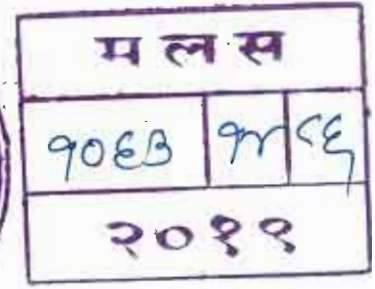 म ल स
१०६३ १४ ८६
२०१९